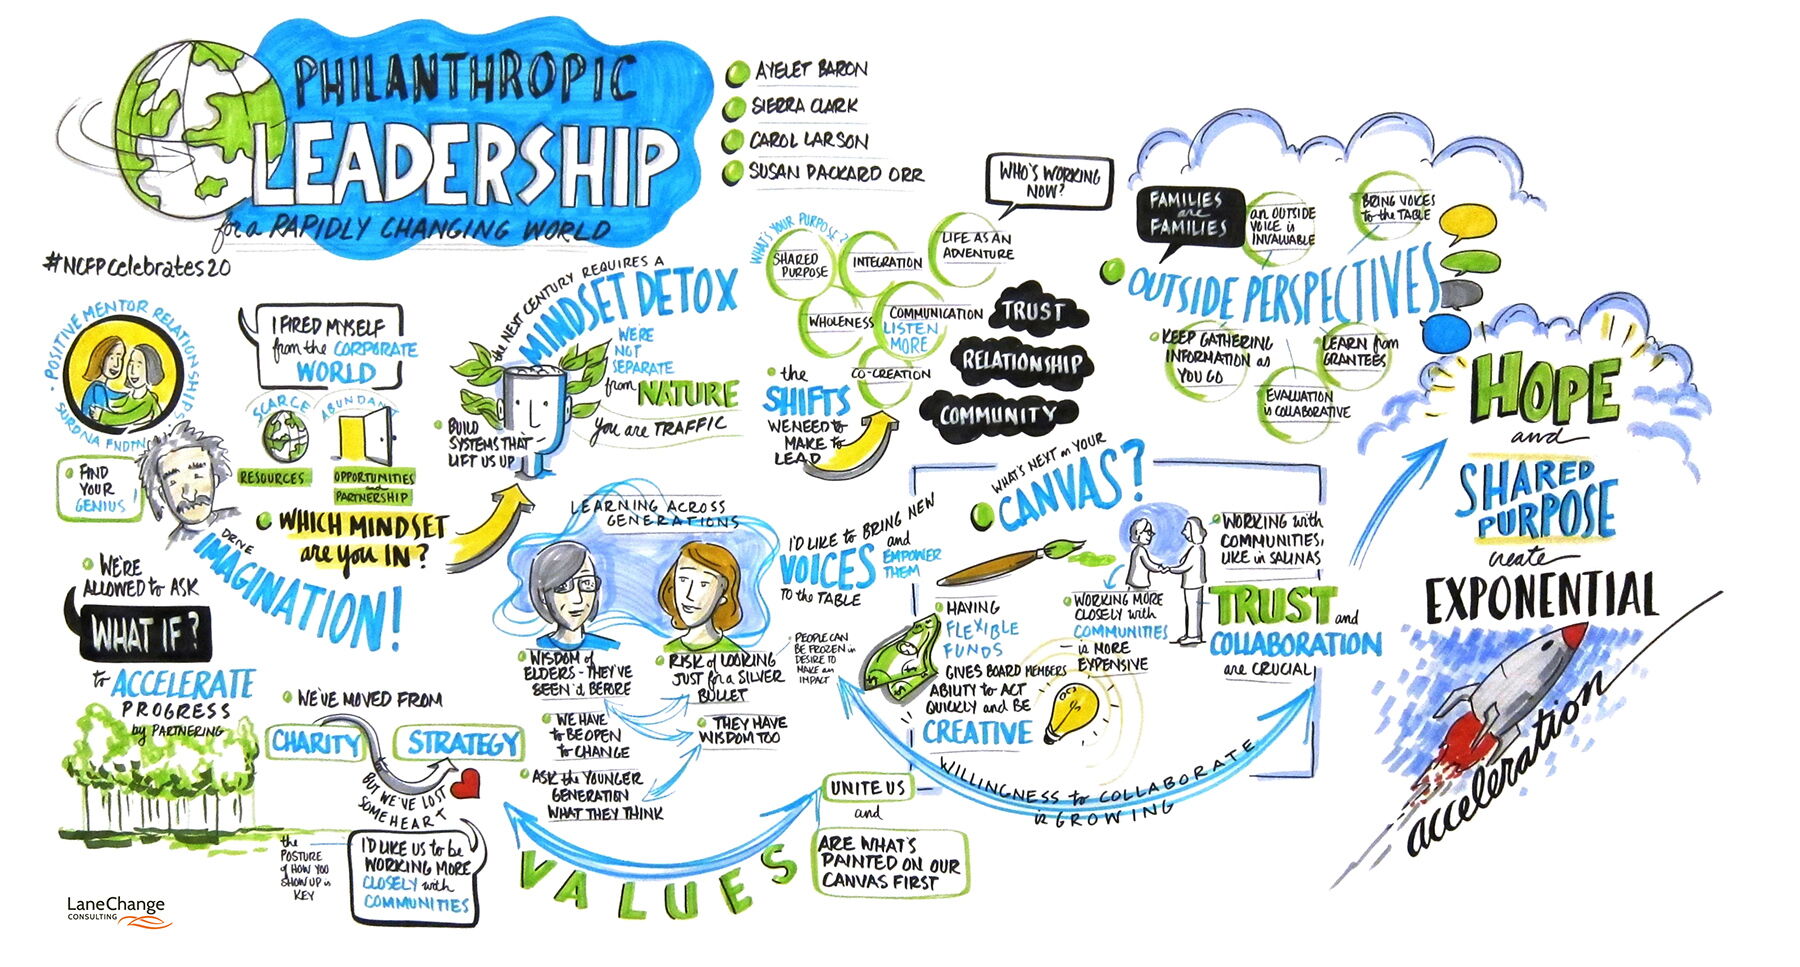 PHILANTHROPIC
LEADERSHIP
for a RAPIDLY CHANGING WORLD
#NCFPCelebrates20
AYELET BARON
SIERRA CLARK
CAROL LARSON
SUSAN PACKARD ORR
POSITIVE MENTOR RELATIONSHIPS
SURDNA FNDTN
I FIRED MYSELF
from the CORPORATE
WORLD
SCARCE
RESOURCES
ABUNDANT
OPPORTUNITIES
and
PARTNERSHIP
FIND
YOUR
GENIUS!
DRIVE
IMAGINATION!
WHICH MINDSET
are you IN?
WE'RE
ALLOWED to ASK
WHAT IF?
to ACCELERATE
PROGRESS
by PARTNERING
WE'VE MOVED FROM
CHARITY
STRATEGY
BUT WE'VE LOST
SOME HEART
the
POSTURE
of HOW YOU
SHOW UP is
KEY
I'D LIKE US to be
WORKING MORE
CLOSELY with
COMMUNITIES
the NEXT CENTURY REQUIRES A
MINDSET DETOX
WE'RE
NOT
SEPARATE
from NATURE
you are TRAFFIC
BUILD
SYSTEMS THAT
LIFT US UP
LEARNING ACROSS
GENERATIONS
WISDOM of
ELDERS - THEY'VE
SEEN it BEFORE
RISK of LOOKING
JUST for a SILVER
BULLET
WE HAVE
to BE OPEN
to CHANGE
THEY HAVE
WISDOM TOO
ASK the YOUNGER
GENERATION
WHAT THEY THINK
VALUES
UNITE US
and
ARE WHAT'S
PAINTED ON OUR
CANVAS FIRST
WHAT'S YOUR PURPOSE?
SHARED
PURPOSE
INTEGRATION
LIFE AS AN
ADVENTURE
WHO'S WORKING
NOW?
WHOLENESS
COMMUNICATION
LISTEN
MORE
CO-CREATION
the
SHIFTS
WE NEED to
MAKE to
LEAD
TRUST
RELATIONSHIP
COMMUNITY
I'D LIKE to BRING NEW
VOICES
and
EMPOWER
THEM
TO the TABLE
PEOPLE CAN
BE FROZEN in
DESIRE TO
MAKE an
IMPACT
WHAT'S NEXT on YOUR
CANVAS?
HAVING
FLEXIBLE
FUNDS
GIVES BOARD MEMBERS
ABILITY to ACT
QUICKLY and BE
CREATIVE
WORKING MORE
CLOSELY with
COMMUNITIES
is MORE
EXPENSIVE
WORKING with
COMMUNITIES,
LIKE in SALINAS
TRUST and
COLLABORATION
are CRUCIAL
WILLINGNESS to COLLABORATE
is GROWING
FAMILIES
are
FAMILIES
an OUTSIDE
VOICE is
INVALUABLE
BRING VOICES
to the TABLE
OUTSIDE PERSPECTIVES
KEEP GATHERING
INFORMATION as
YOU GO
LEARN from
GRANTEES
EVALUATION
is COLLABORATIVE
HOPE
and
SHARED
PURPOSE
create
EXPONENTIAL
acceleration
LaneChange
CONSULTING